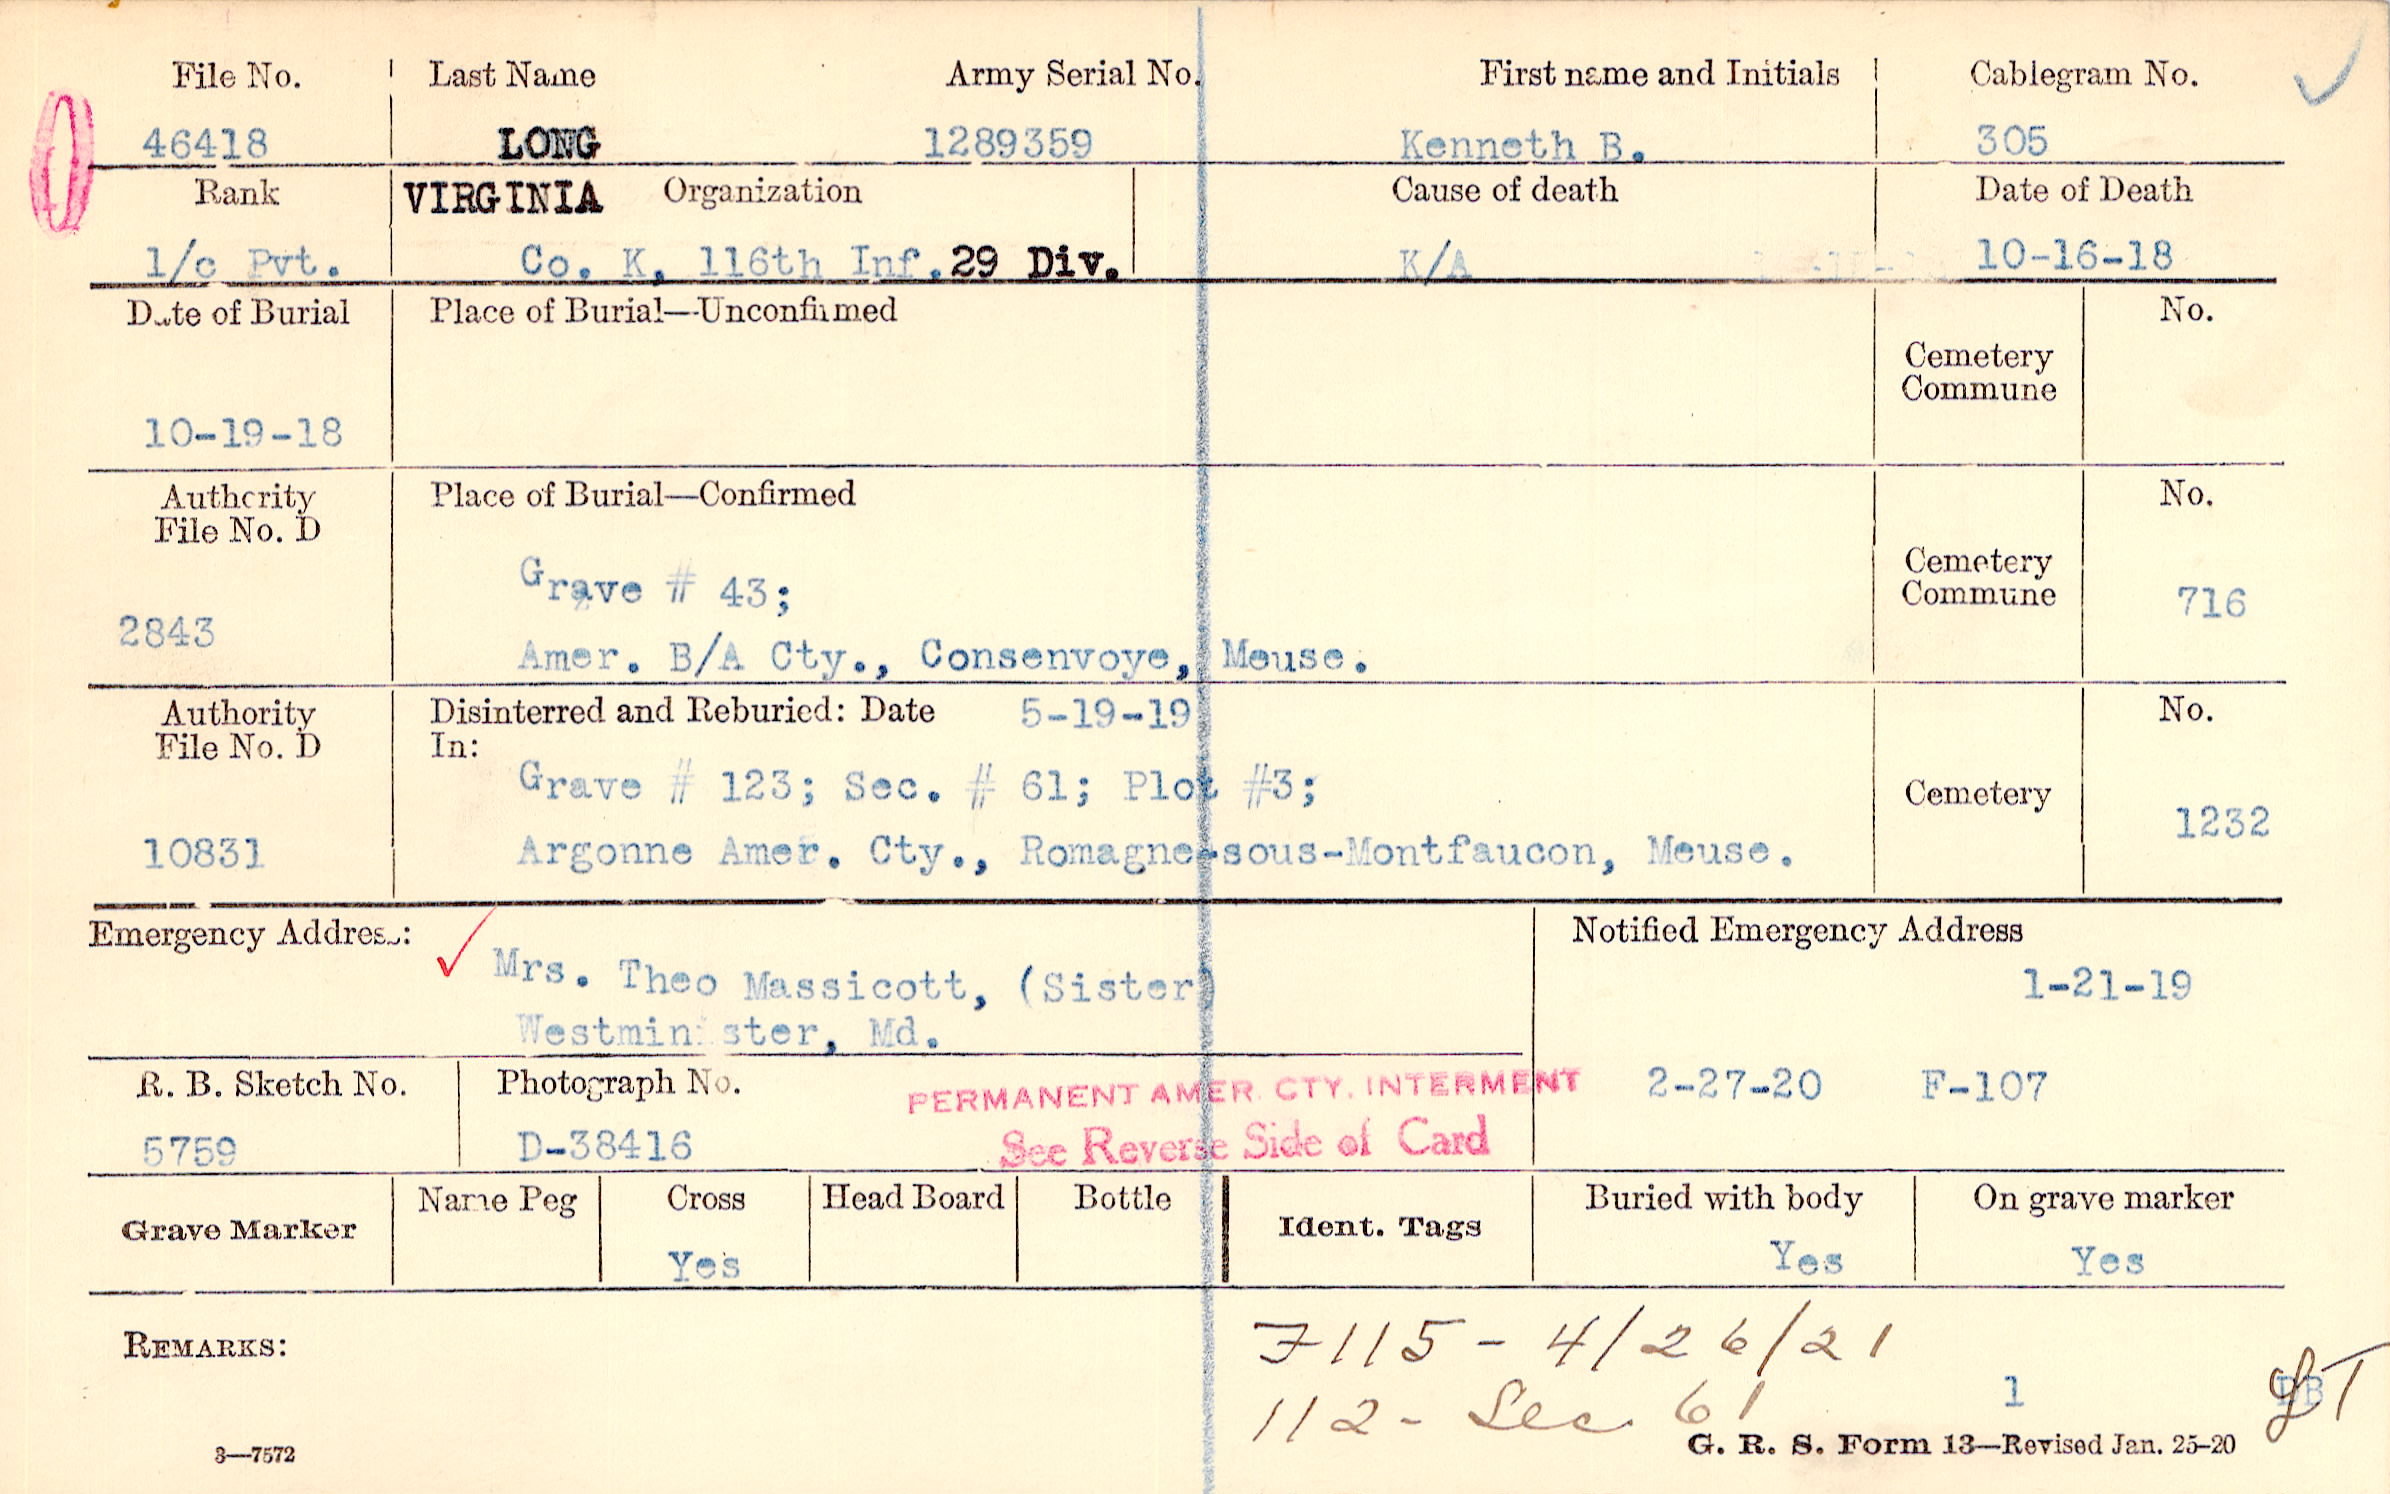 File No. Last Name Army Serial No. First name and Initials Cablegram No.
46418 LONG 1289359 Kenneth B. 305
Rank VIRGINIA Organization Cause of death Date of Death
1/c Pvt. Co. K, 116th Inf. 29 Div. K/A 10-16-18
Date of Burial Place of Burial—Unconfirmed No.
Cemetery
Commune
10-19-18
Authority Place of Burial—Confirmed No.
File No. D
Grave # 43; Cemetery
Commune 716
2843
Amer. B/A Cty., Consenvoye, Meuse.
Authority Disinterred and Reburied: Date 5-19-19 No.
File No. D In:
Grave # 123; Sec. # 61; Plot #3; Cemetery
1232
10831 Argonne Amer. Cty., Romagne-sous-Montfaucon, Meuse.
Emergency Address: Notified Emergency Address
Mrs. Theo Massicott, (Sister) 1-21-19
Westminster, Md.
R. B. Sketch No. Photograph No. PERMANENT AMER. CTY. INTERMENT 2-27-20 F-107
5759 D-38416 See Reverse Side of Card
Grave Marker Name Peg Cross Head Board Bottle Ident. Tags Buried with body On grave marker
Yes Yes Yes
REMARKS: F115 - 4/26/21
112 - Sec 61 1
3—7572 G. R. S. Form 13—Revised Jan. 25-20